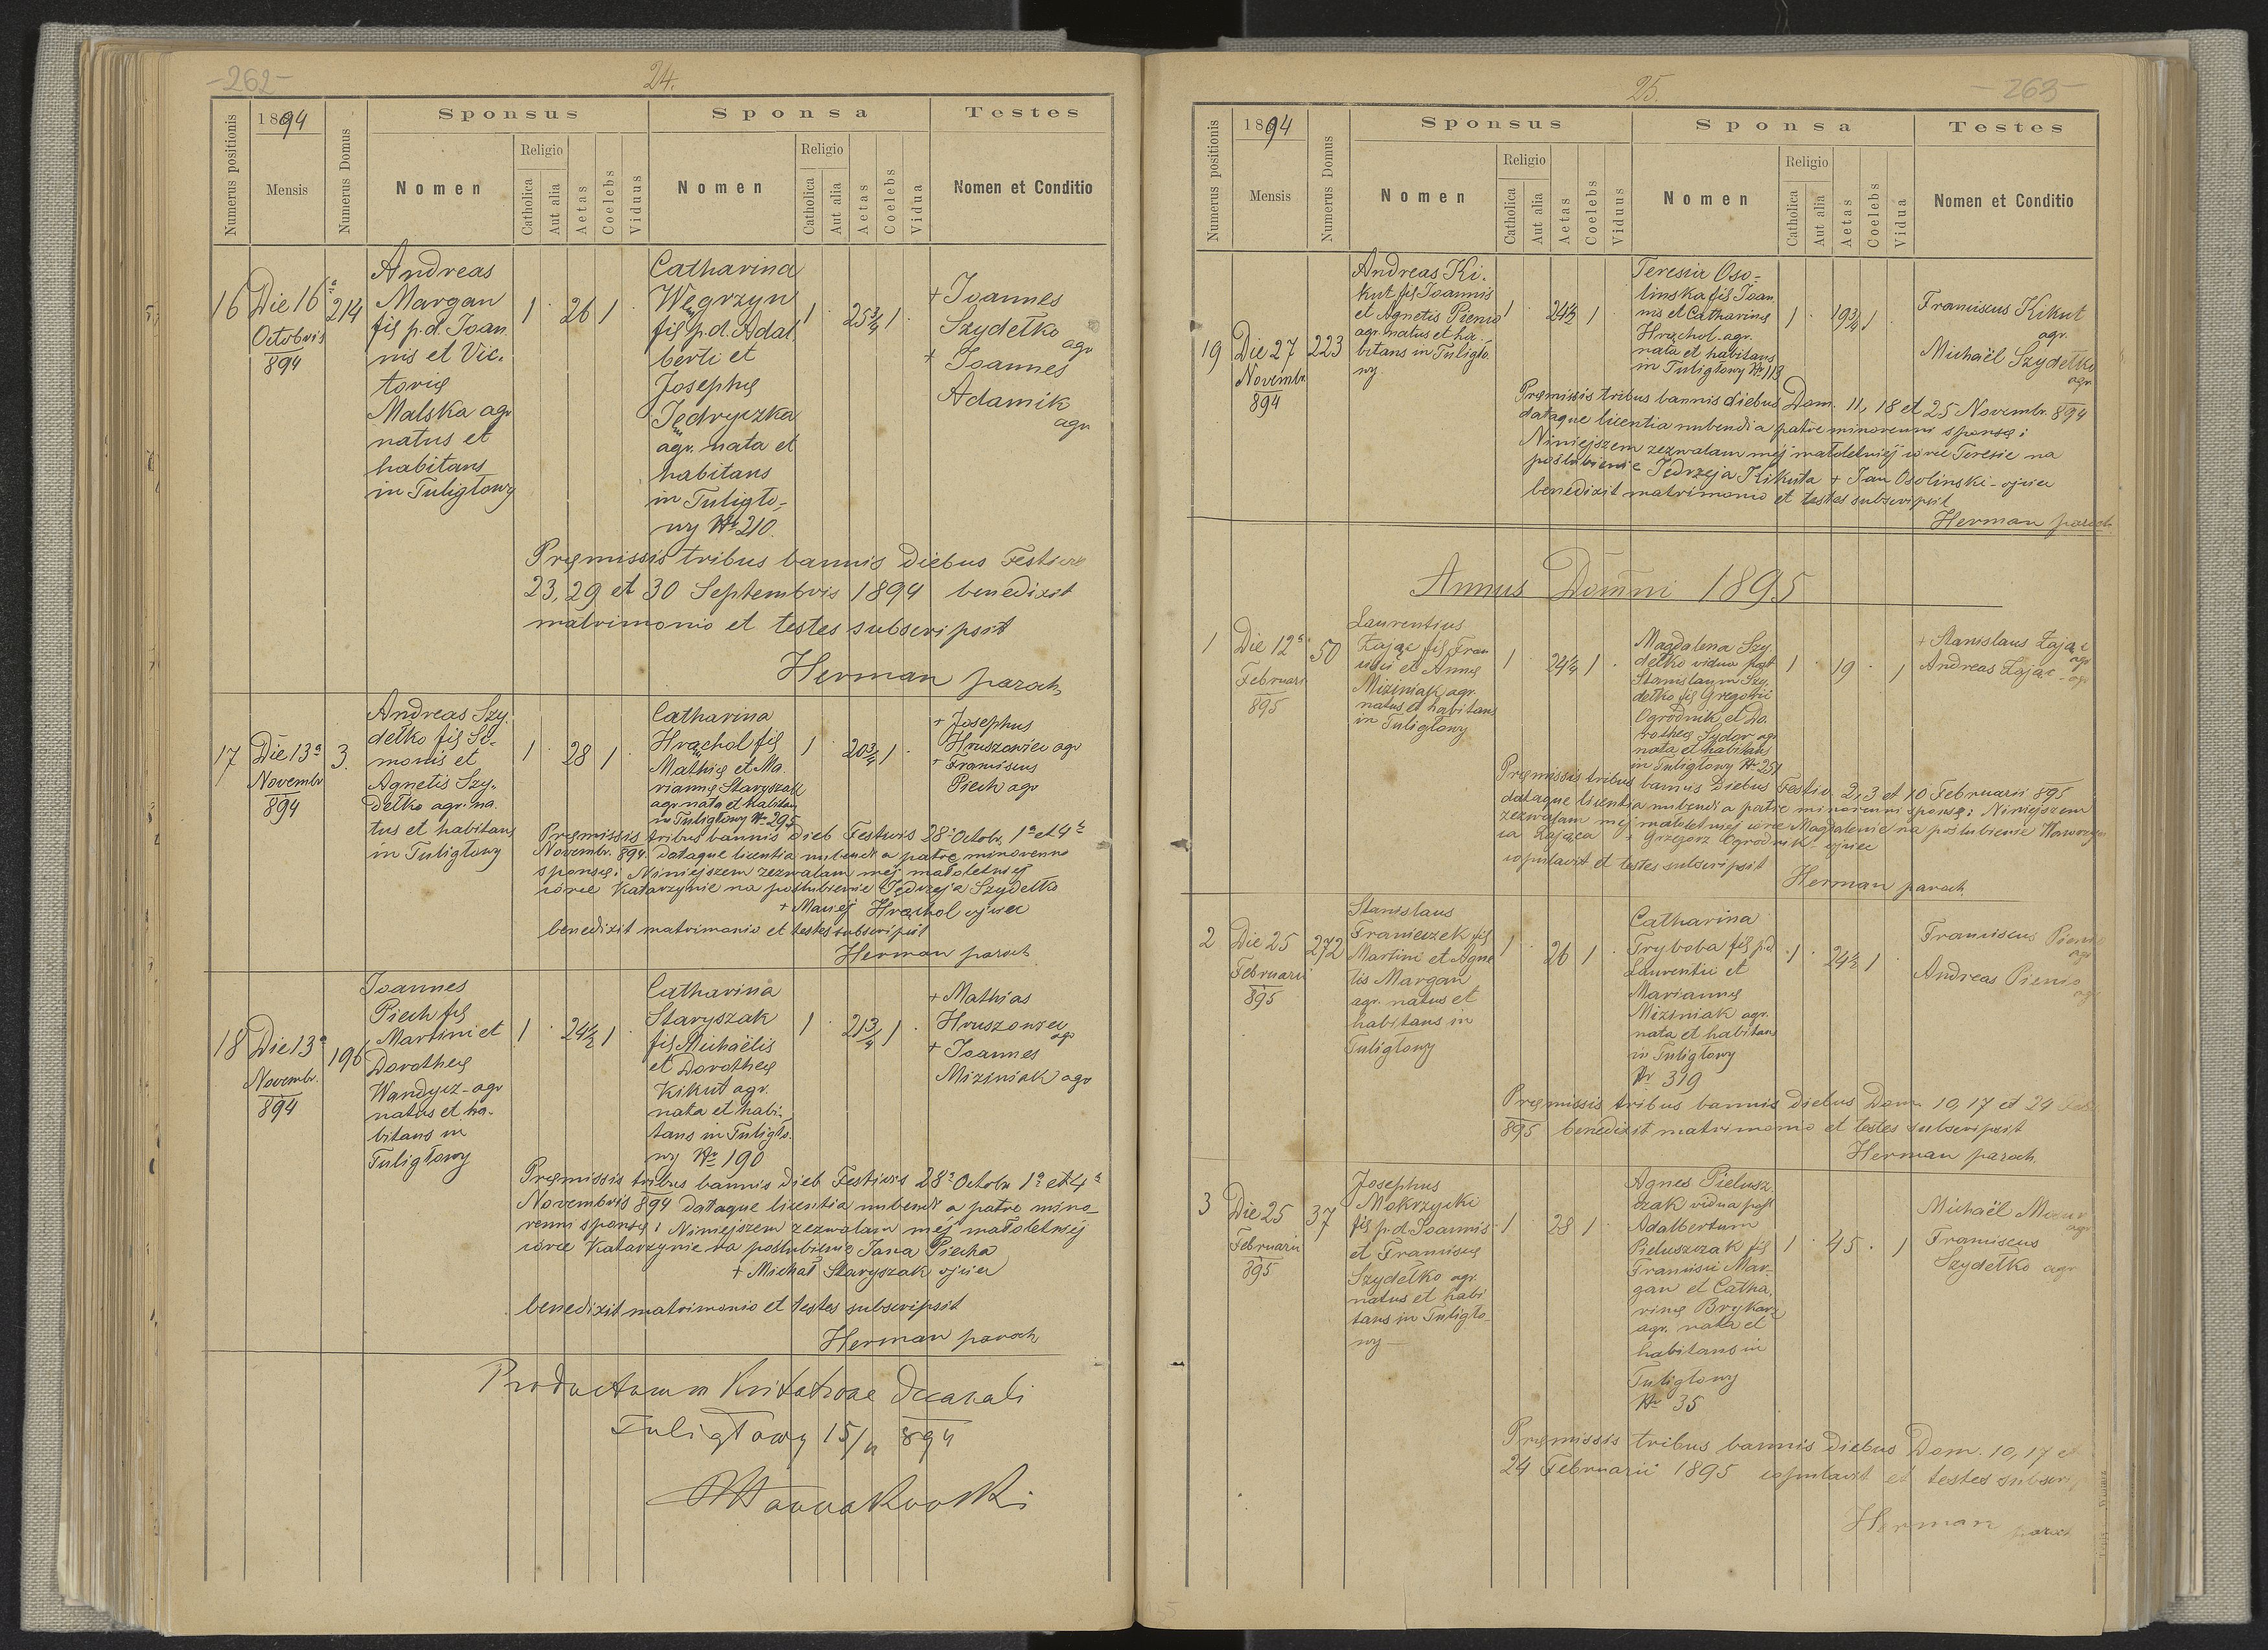 -262-
24.
Numerus positionis
1894
Mensis
Numerus Domus
Sponsus
Sponsa
Testes
Nomen
Religio
Catholica
Aut alia
Aetas
Coelebs
Viduus
Nomen
Religio
Catholica
Aut alia
Aetas
Coelebs
Vidua
Nomen et Conditio
16
Die 16ª
Octobris
894
214
Andreas
Margan
fil p.d. Joan
nis et Vic-
torię
Malska agr
natus et
habitans
in Tuligłowy
1 · 26 1
Catharina
Węgrzyn
fil p.d. Adal
berti et
Josephę
Jędryczka
agr. nata et
habitans
in Tuligło-
wy Nr 210.
1 · 25 3/4 1 ·
+ Joannes
Szydełko
agr
+ Joannes
Adamik
agr
Pręmissis tribus bannis diebus Festivis
23, 29 et 30 Septembris 1894 benedixit
matrimonio et testes subscripsit
Herman paroch
17
Die 13ª
Novembr
894
3.
Andreas Szy-
dełko fil Si-
monis et
Agnetis Szy-
dełko agr. na-
tus et habitans
in Tuligłowy
1 · 28 1 ·
Catharina
Hrąchol fil
Mathię et Ma-
riannę Staryszak
agr nata et habitans
in Tuligłowy Nr 295
1 · 20 3/4 1 ·
+ Josephus
Hruszowiec agr
+ Franciscus
Piech agr
Pręmissis tribus bannis dieb Festivis 28ª Octobr, 1ª et 4ª
Novembr. 894. dataque licentia nubendi a patre minorenni
sponsę: Niniejszem zezwalam mej małoletniej
córce Katarzynie na poślubienie Jędrzeja Szydełka
+ Maciej Hrąchol ojciec
benedixit matrimonio et testes subscripsit
Herman paroch
18
Die 13ª
Novembr.
894
196
Joannes
Piech fil
Martini et
Dorotheę
Wandycz - agr
natus et ha-
bitans in
Tuligłowy
1 · 24 1/2 1 ·
Catharina
Staryszak
fil Michaëlis
et Dorotheę
Kikut agr.
nata et habi-
tans in Tuligło-
wy Nr 190
1 · 21 3/4 1 ·
+ Mathias
Hruszowiec
agr
+ Joannes
Miziniak agr
Pręmissis tribus bannis dieb Festivis 28ª Octobr 1ª et 4ª
Novembris 894 dataque licentia nubendi a patre mino-
renni sponsę: Niniejszem zezwalam mej małoletniej
córce Katarzynie na poślubienie Jana Piecha
+ Michał Staryszak ojciec
benedixit matrimonio et testes subscripsit
Herman paroch
Tuligłowy 15/11 894
25.
-263-
Numerus positionis
1894
Mensis
Numerus Domus
Sponsus
Sponsa
Testes
Nomen
Religio
Catholica
Aut alia
Aetas
Coelebs
Viduus
Nomen
Religio
Catholica
Aut alia
Aetas
Coelebs
Vidua
Nomen et Conditio
19
Die 27
Novembr.
894
223
Andreas Ki-
kut fil Joannis
et Agnetis Pienio
agr. natus et ha-
bitans in Tuligło-
wy.
1 · 24 1/2 1 ·
Teresia Oso-
linska fil Joan
nis et Catharinę
Hrąchol. agr.
nata et habitans
in Tuligłowy Nr 113
1 · 19 3/4 1
Franciscus Kikut
agr.
Michaël Szydełko
agr.
Pręmissis tribus bannis diebus Dom. 11, 18 et 25 Novembr. 894
dataque licentia nubendi a patre minorenni sponsę:
Niniejszem zezwalam mej małoletniej córce Teresie na
poślubienie Jędrzeja Kikuta + Jan Osolinski - ojciec
benedixit matrimonio et testes subscripsit
Herman paroch
Annus Domini 1895
1
Die 12ª
Februarii
895
50
Laurentius
Zając fil Fran
cisci et Annę
Miziniak agr.
natus et habitans
in Tuligłowy
1 · 24 1/4 1 ·
Magdalena Szy-
dełko vidua post
Stanislaum Szy-
dełko fil Gregorii
Ogrodnik et Do-
rotheę Sydor agr
nata et habitans
in Tuligłowy Nr 251
1 · 19 · 1
+ Stanislaus Zając
agr
Andreas Zając - agr
Pręmissis tribus bannis diebus Festiv. 2, 3 et 10 Februarii 895
dataque licentia nubendi a patre minorenni sponsę: Niniejszem
zezwalam mej małoletniej córce Magdalenie na poślubienie Wawrzyń
ca Zająca + Grzegorz Ogrodnik - ojciec
copulavit et testes subscripsit
Herman paroch
2
Die 25
Februarii
895
272
Stanislaus
Franieczek fil
Martini et Agne
tis Margan
agr. natus et
habitans in
Tuligłowy
1 · 26 1 ·
Catharina
Tryboba fil p.d
Laurentii et
Mariannę
Miziniak agr.
nata et habitans
in Tuligłowy
Nr 319
1 · 24 1/2 1
Franciscus Pienio
agr
Andreas Pienio
agr
Pręmissis tribus bannis diebus Dom. 10, 17 et 24 Febr
895 benedixit matrimonio et testes subscripsit
Herman paroch.
3
Die 25
Februarii
895
37
Josephus
Mokrzycki
fil p.d. Joannis
et Franciscę
Szydełko agr.
natus et habi
tans in Tuligło-
wy -
1 · 28 1 ·
Agnes Pielusz
czak vidua post
Adalbertum
Pieluszczak fil
Francisci Mar-
gan et Catha-
rinę Brykarz
agr. nata et
habitans in
Tuligłowy
Nr 35
1 · 45 · 1
Michaël
agr
Franciscus
Szydełko agr
Pręmissis tribus bannis diebus Dom. 10, 17 et
24 Februarii 1895 copulavit et testes subscri
Herman paroch